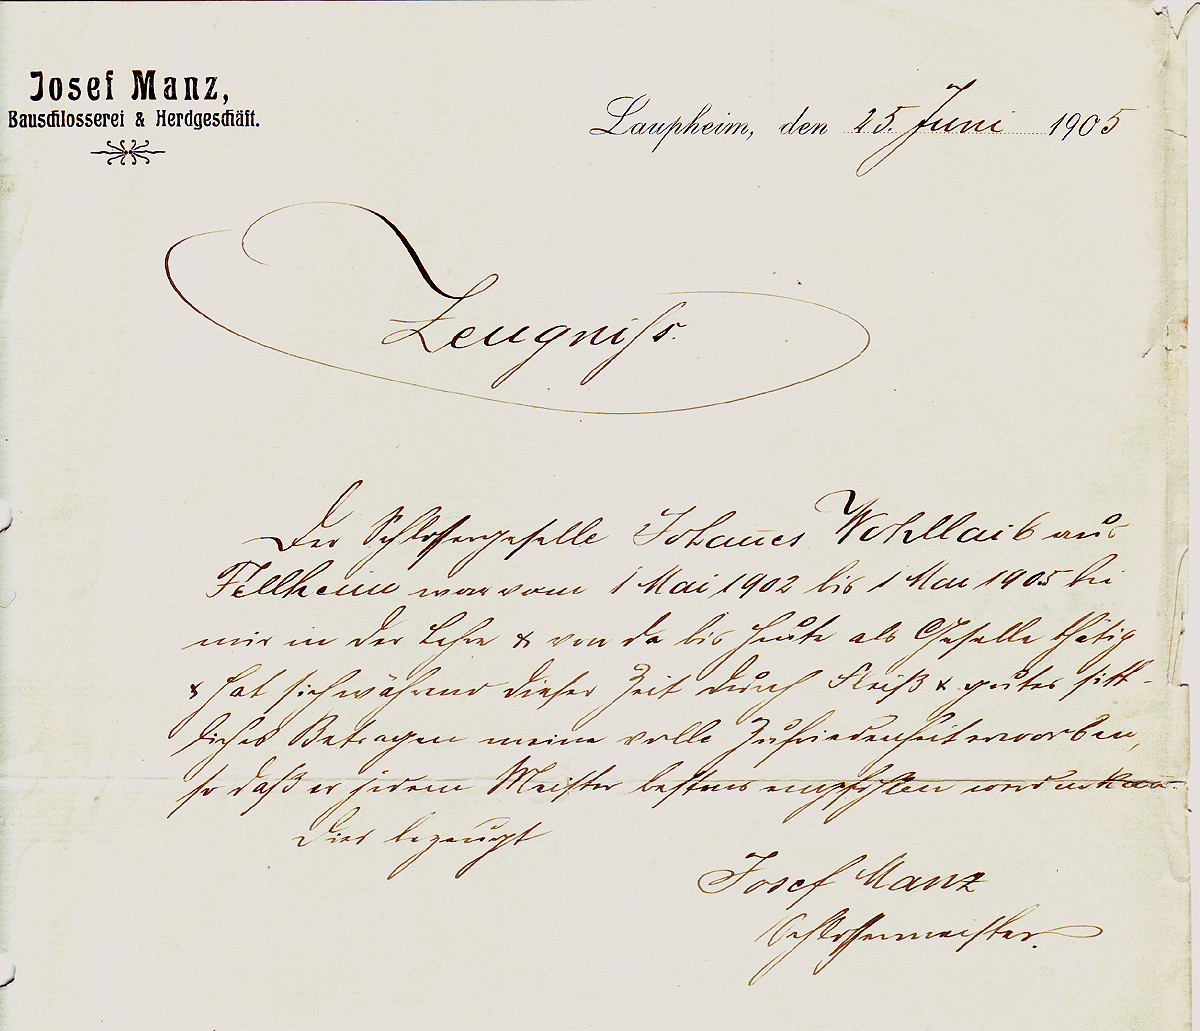 Josef Manz,
Bauschlosserei & Herdgeschäft.
Laupheim, den 25. Juni 1905
Zeugniss.
Der Schlossergeselle Johannes Wohllaib aus
Fellheim war vom 1 Mai 1902 bis 1 Mai 1905 bei
mir in der Lehre & von da bis heute als Geselle thätig
& hat sich während dieser Zeit durch Fleiß & gutes sitt-
liches Betragen meine volle Zufriedenheit erworben,
so daß er jedem Meister bestens empfohlen werden kann.
Dies bezeugt
Josef Manz
Schlossermeister.